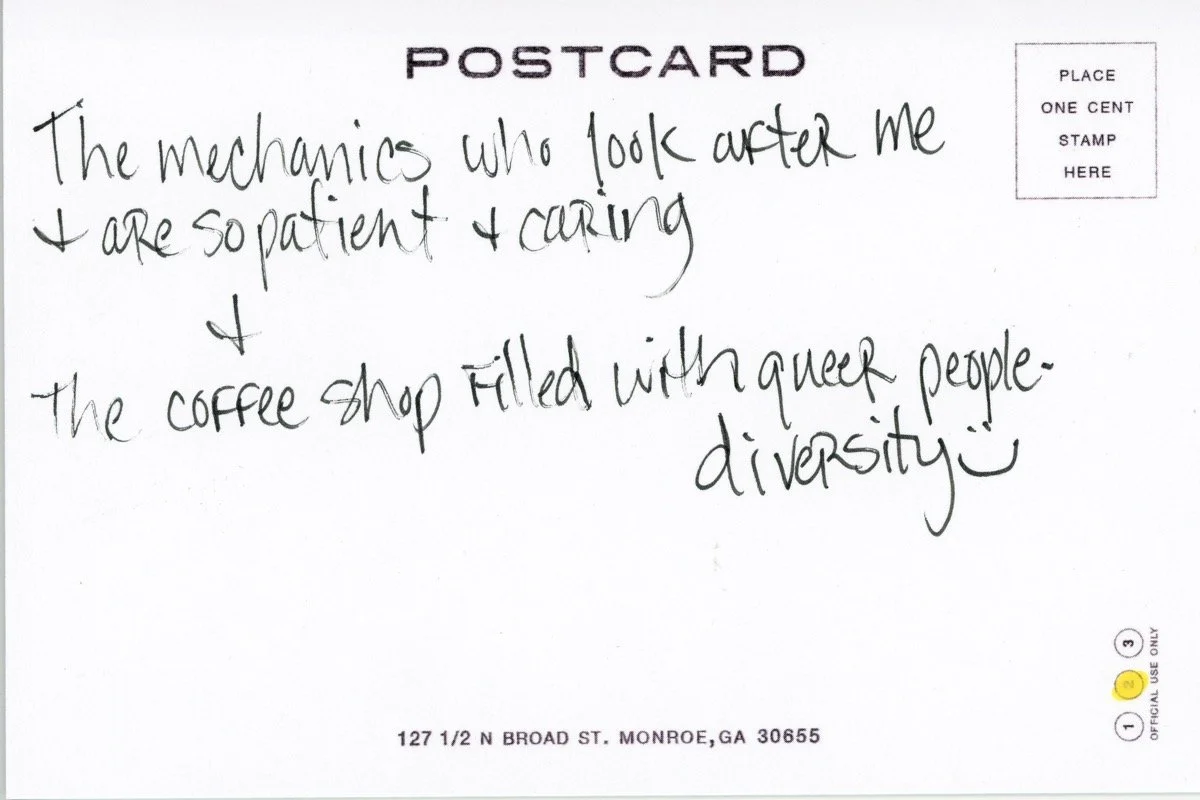 POSTCARD
PLACE
ONE CENT
STAMP
HERE
The mechanics who look after me
+ are so patient + caring
+
the coffee shop filled with queer people-
diversity
127 1/2 N BROAD ST. MONROE, GA 30655
1 2 3
OFFICIAL USE ONLY